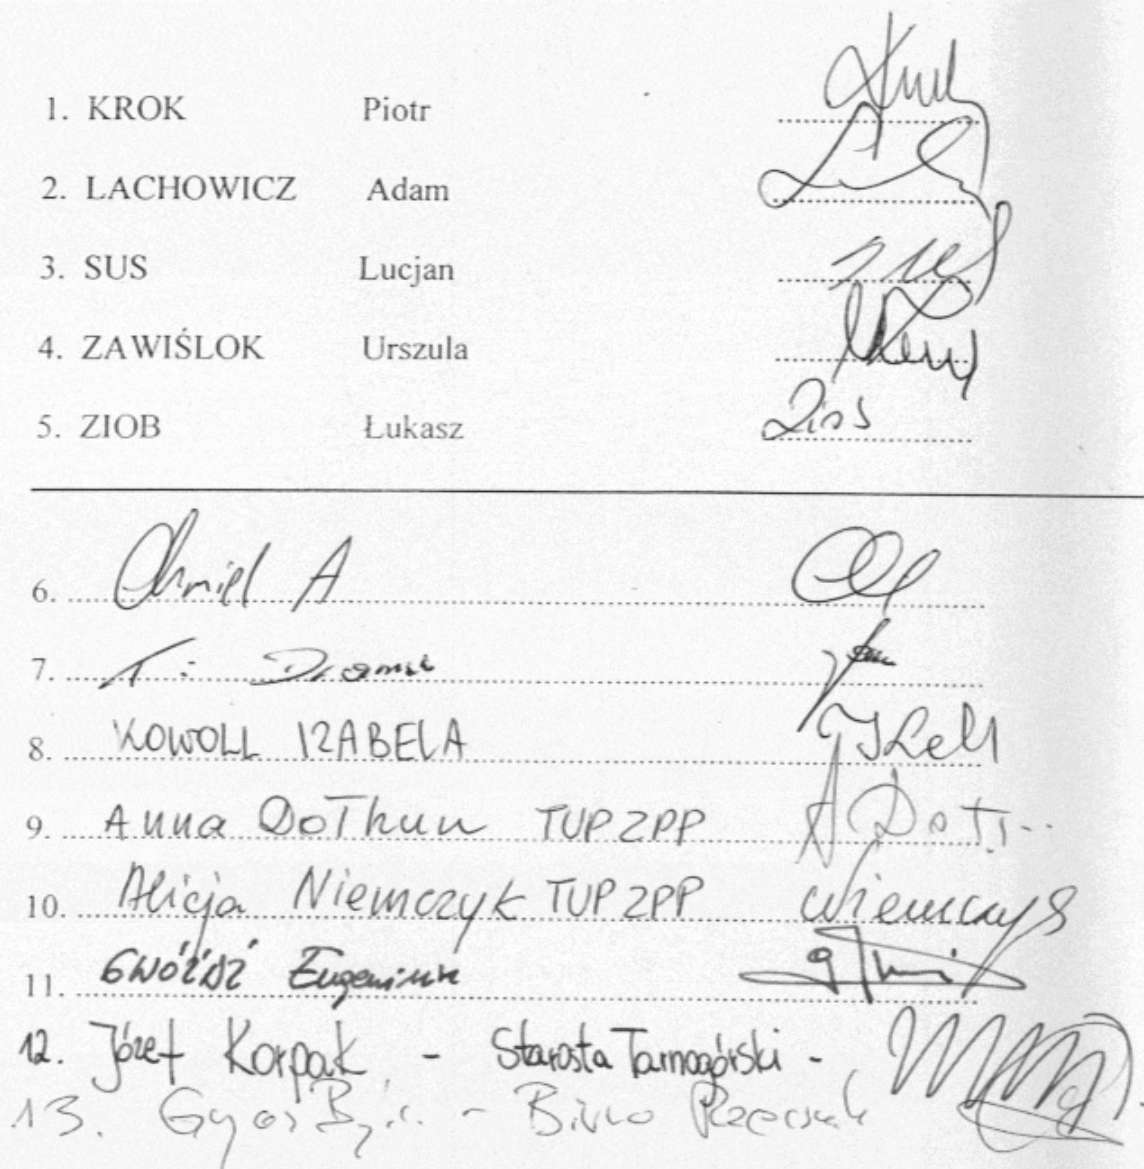 1. KROK Piotr
2. LACHOWICZ Adam
3. SUS Lucjan
4. ZAWIŚLOK Urszula
5. ZIOB Łukasz
6. Chmiel A
7. T.
8. KOWOLL IZABELA
9. Anna DoThun TUP ZPP
10. Alicja Niemczyk TUP ZPP
11. GWÓŹDŹ Eugeniusz
12. Józef Korpak - Starosta Tarnogórski -
13. - Biuro